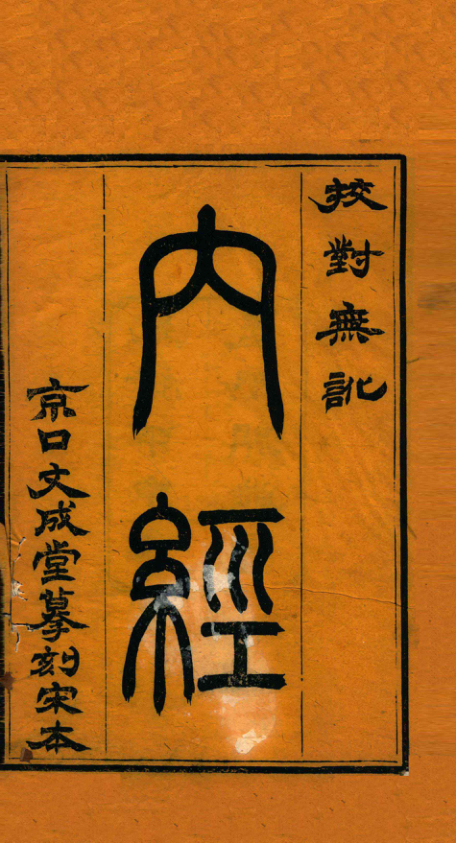 挍對無訛
內經
京口文成堂摹刻宋本